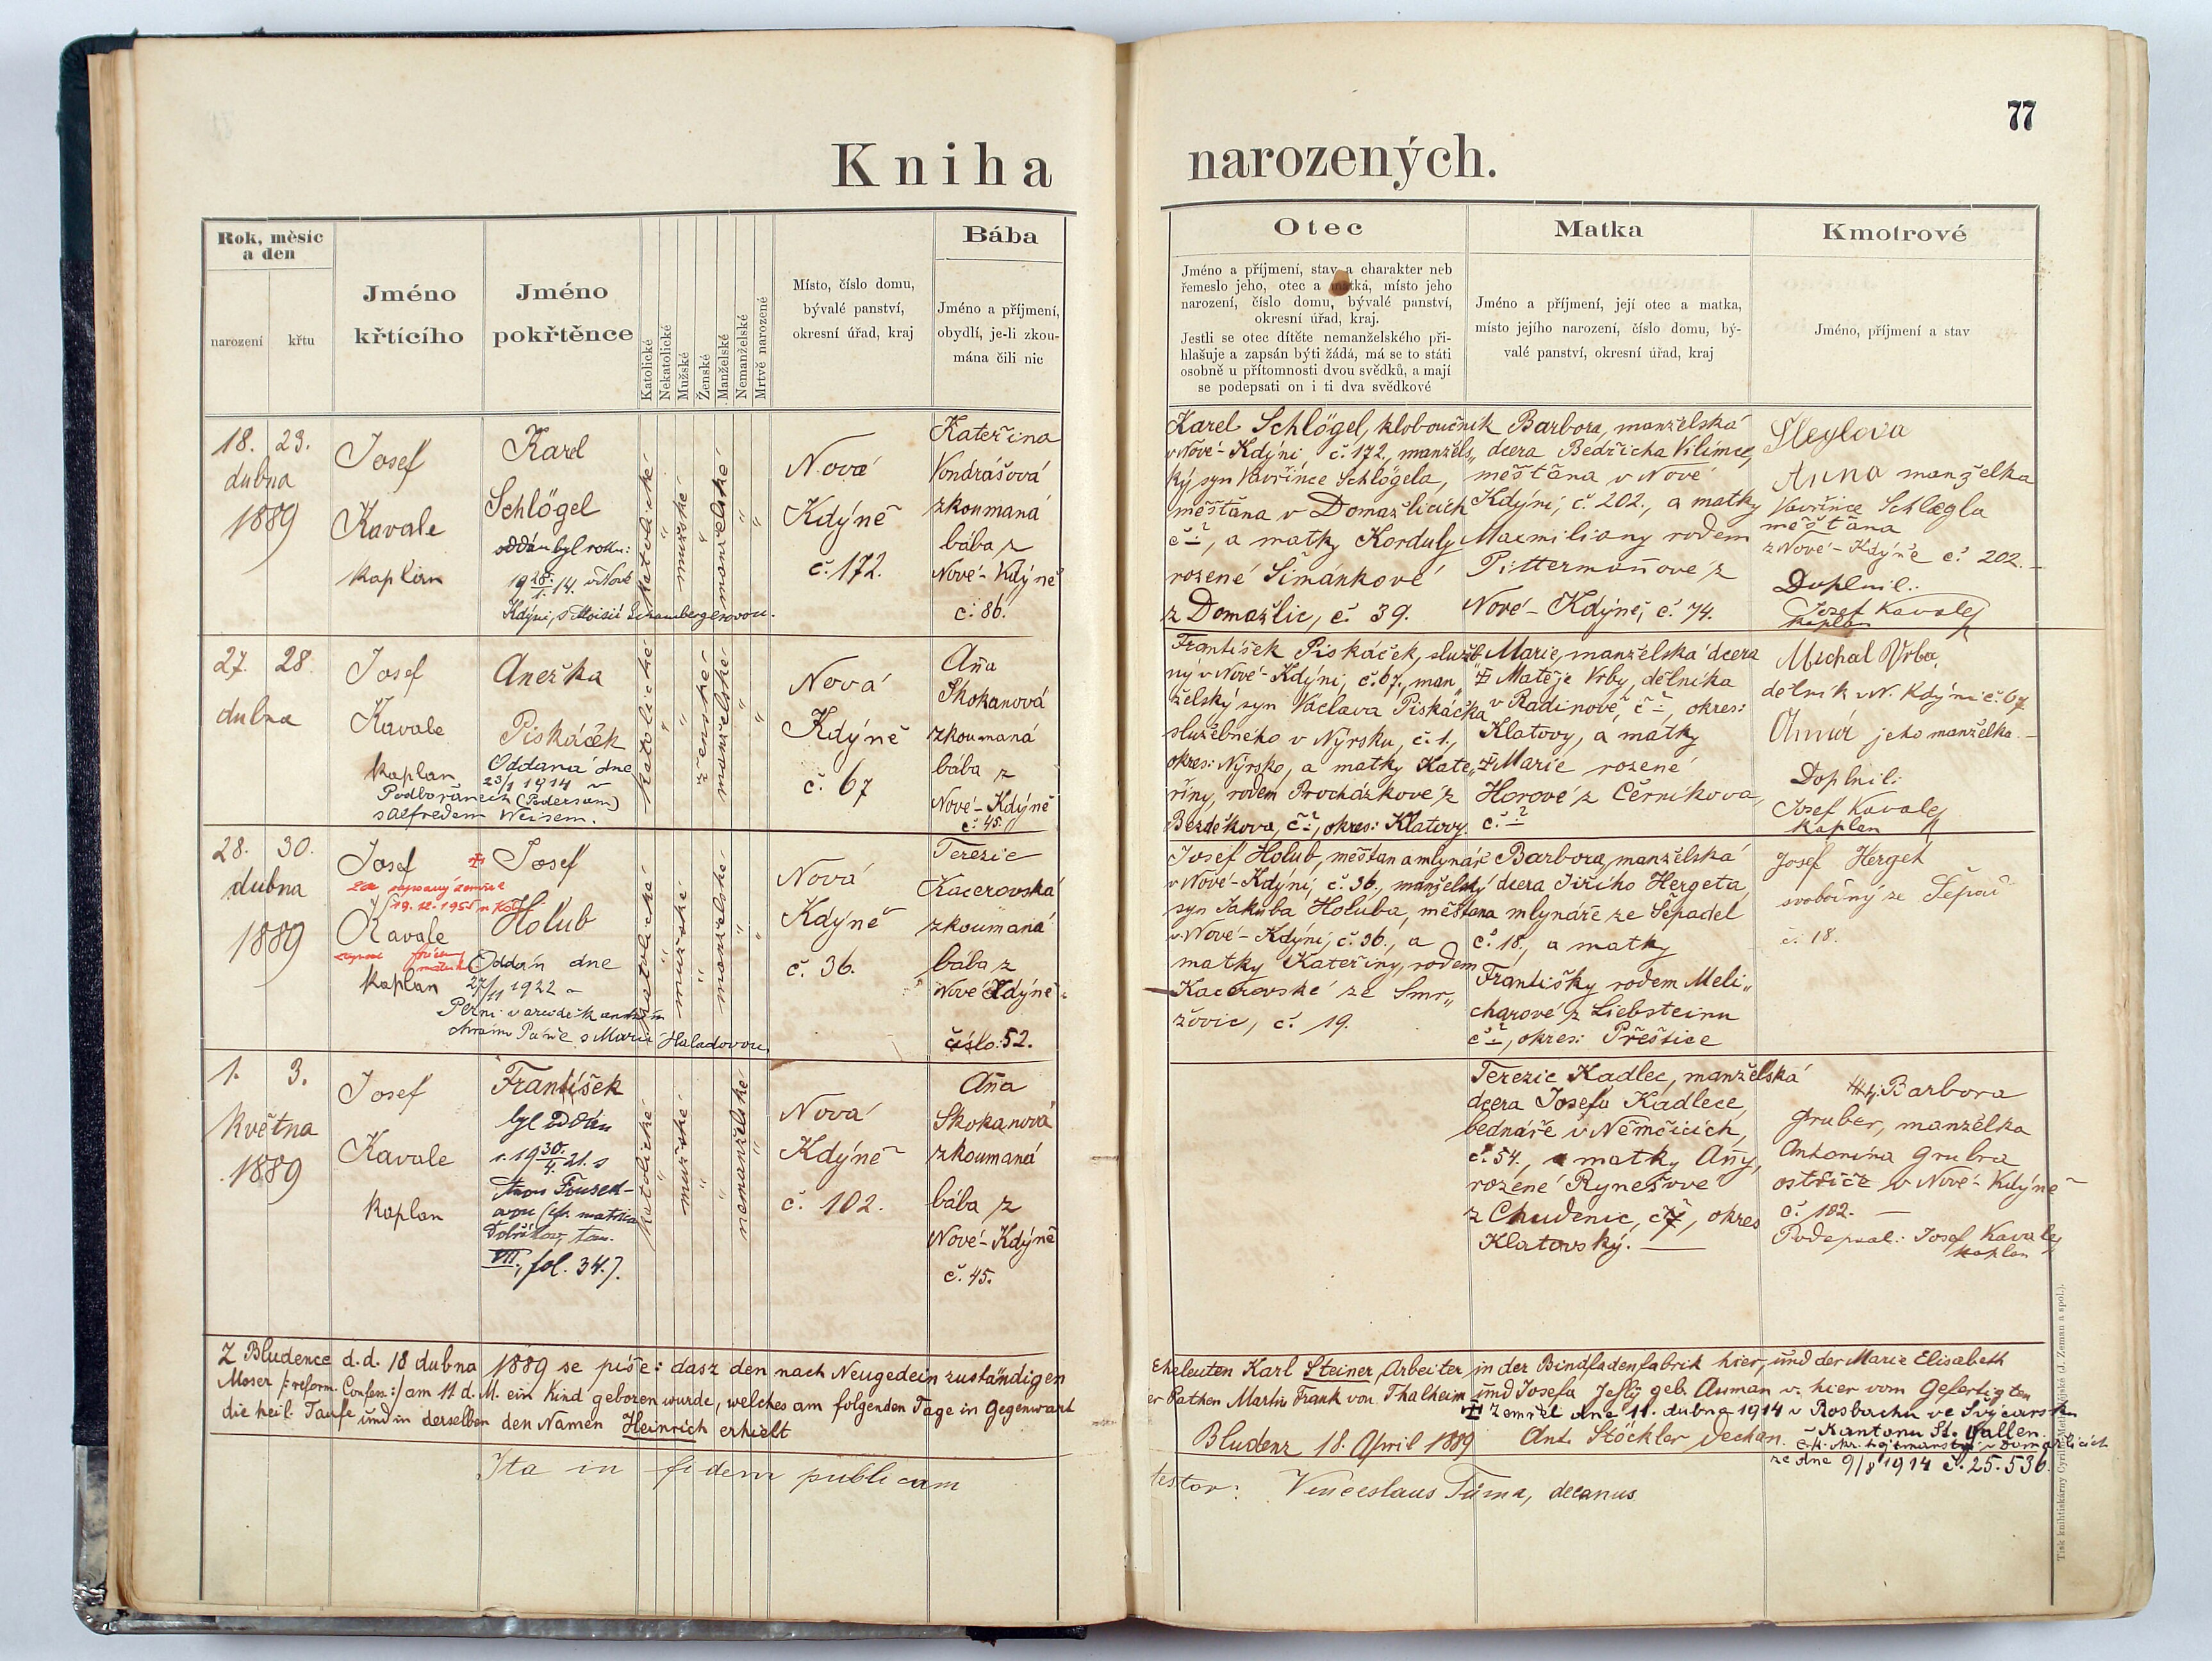 77
Kniha narozených.
Rok, měsíc a den
narození
křtu
Jméno křtícího
Jméno pokřtěnce
Katolické
Nekatolické
Mužské
Ženské
Manželské
Nemanželské
Mrtvě narozené
Místo, číslo domu,
bývalé panství,
okresní úřad, kraj
Bába
Jméno a příjmení,
obydlí, je-li zkou-
mána čili nic
Otec
Jméno a příjmení, stav a charakter neb
řemeslo jeho, otec a matka, místo jeho
narození, číslo domu, bývalé panství,
okresní úřad, kraj.
Jestli se otec dítěte nemanželského při-
hlašuje a zapsán býti žádá, má se to státi
osobně u přítomnosti dvou svědků, a mají
se podepsati on i ti dva svědkové
Matka
Jméno a příjmení, její otec a matka,
místo jejího narození, číslo domu, bý-
valé panství, okresní úřad, kraj
Kmotrové
Jméno, příjmení a stav
18. 23.
dubna
1889
Josef
Kavale
kaplan
Karel
Schlögel
oddán byl roku:
19 28./1. 14. v Nové
Kdýni, s Aloisií Schambergerovou.
Katolické
"
mužské
"
manželské
"
"
Nová
Kdýně
č. 172.
Kateřina
Vondrášová
zkoumaná
bába z
Nové-Kdýně
č: 86.
Karel Schlögel, kloboučník
v Nové-Kdýni č. 172., manžels„
ký syn Vavřince Schlögela,
měštana v Domažlicích
č ?, a matky Korduly
rozené Šimánkové
z Domažlic, č. 39.
Barbora, manželská
dcera Bedřicha Vilímce,
měštana v Nové
Kdýni, č. 202., a matky
Maxmiliany rodem
Pittermañove z
Nové-Kdýně, č. 74.
Šleglova
Anna manželka
Vavřince Schlægla
měštana
z Nové-Kdýně č. 202.
Doplnil:
Josef Kavale
kaplan
27. 28.
dubna
Josef
Kavale
kaplan
Anežka
Piskáček
Oddaná dne
23/1 1914 v
Podbořanech (Podersam)
s Alfredem Weisem.
Katolické
"
"
ženské
manželské
"
"
Nová
Kdýně
č. 67
Aña
Skokanová
zkoumaná
bába z
Nové-Kdýně
č: 45.
František Piskáček, služeb„
ný v Nové-Kdýni, č. 67., man„
želský syn Václava Piskáčka
služebného v Nýrsku, č. 1.,
okres: Nýrsko, a matky Kate„
řiny, rodem Procházkové z
Bezděkova, č ?, okres: Klatovy.
Marie, manželská dcera
‡ Matěje Vrby, dělníka
v Radinově, č ?, okres:
Klatovy, a matky
‡ Marie rozené
Horové z Černíkova,
č. ?
Michal Vrba,
dělník v N. Kdýni č. 67
Anna jeho manželka
Doplnil:
Josef Kavale
kaplan
28. 30.
dubna
1889
Josef
Kavale
kaplan
Josef
Holub
zemřel
19. 12. 1955
Oddán dne
27/11 1922 v
Plzni v arciděkanském
chrámu Páně s Marií Haladovou.
Katolické
"
mužské
"
manželské
"
"
Nová
Kdýně
č. 36.
Terezie
Kacerovská
zkoumaná
bába z
Nové Kdýně
číslo: 52.
Josef Holub, měštan a mlynář
v Nové-Kdýni, č. 36., manželský
syn Jakuba Holuba, měštana
v Nové-Kdýni, č. 36., a
matky Kateřiny, rodem
Kacerovské ze Smr„
žovic, č. 19.
Barbora, manželská
dcera Jiřího Hergeta,
mlynáře ze Šepadel
č. 18., a matky
Františky rodem Meli„
charové z Liebsteinu
č ?, okres: Přeštice
Josef Herget
svobodný ze Šepad
č: 18.
1. 3.
května
1889
Josef
Kavale
kaplan
František
byl oddán
r. 19 30./4. 21. s
Annou Fousek-
ovou (cfr. matrika
tom.
VII., fol. 34.).
Katolické
"
mužské
"
"
nemanželské
"
Nová
Kdýně
č. 102.
Aña
Skokanová
zkoumaná
bába z
Nové-Kdýně
č. 45.
Terezie Kadlec, manželská
dcera Josefa Kadlece,
bednáře v Němčicích,
č. 54., a matky Añy,
rozené Rynešove
z Chudenic, č 7, okres
Klatovský.
Barbora
Gruber, manželka
Antonína Grubra
ostřiče v Nové-Kdýně
č. 182.
Podepsal: Josef Kavale
kaplan
Z Bludence d.d. 18 dubna 1889 se píše: dasz den nach Neugedein zuständigen Eheleuten Karl Steiner, Arbeiter in der Bindfadenfabrik hier, und der Marie Elisabeth
Moser /: reform. Confess :/ am 11 d. M. ein Kind geboren wurde, welches am folgenden Tage in Gegenwart der Pathen Martin Frank von Thalheim und Josefa Jeßy geb. Auman v. hier vom Gefertigten
die heil. Taufe und in derselben den Namen Heinrich erhielt
‡ Zemřel dne 11. dubna 1914 v Rosbachu ve Švýcarsku
v Kantonu St. Gallen.
Bludenz 18. April 1889 Ant. Stöckler Dechan.
C. k. okr. hejtmanství v Domažlicích
ze dne 9/8 1914 č. 25.536.
Ita in fidem publicam testor: Venceslaus Tůma, decanus
Tisk knihtiskárny Cyrillo-Methodějské (J. Zeman a spol.).